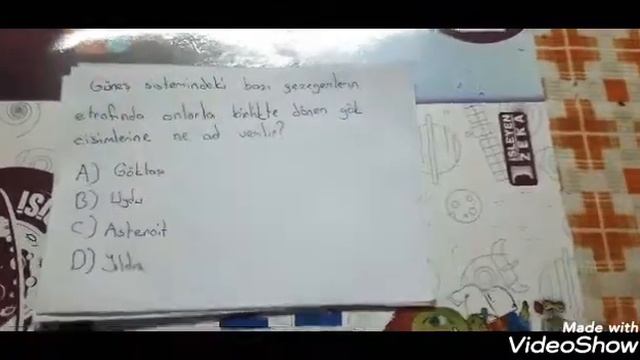 Güneş sistemindeki bazı gezegenlerin
etrafında onlarla birlikte dönen gök
cisimlerine ne ad verilir?
A) Göktaşı
B) Uydu
C) Asteroit
D) Yıldız
İŞLEYEN
ZEKA
Made with
VideoShow